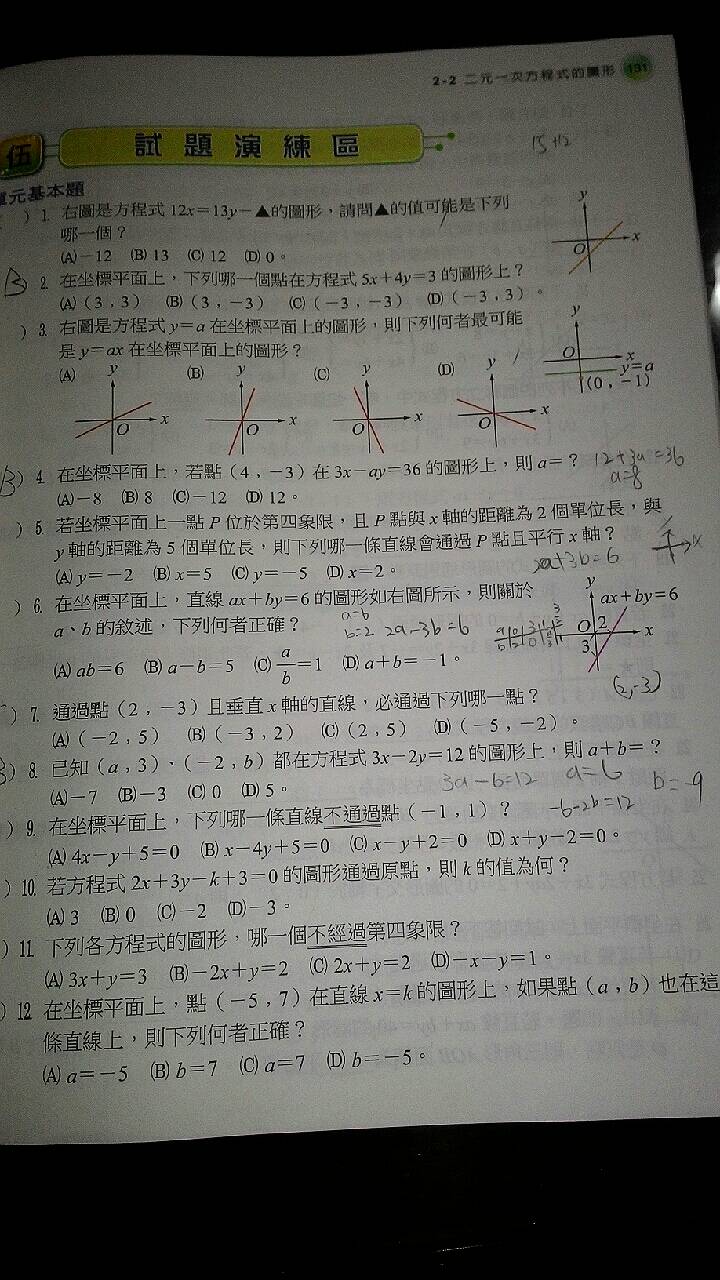 2-2 二元一次方程式的圖形 131
伍 試題演練區
15+12
單元基本題
) 1. 右圖是方程式 12x=13y-▲的圖形，請問▲的值可能是下列
哪一個？
(A)-12 (B) 13 (C) 12 (D) 0。
y
O x
B 2. 在坐標平面上，下列哪一個點在方程式 5x+4y=3 的圖形上？
(A)(3,3) (B)(3,-3) (C)(-3,-3) (D)(-3,3)。
) 3. 右圖是方程式 y=a 在坐標平面上的圖形，則下列何者最可能
是 y=ax 在坐標平面上的圖形？
y
O x
y=a
(0,-1)
(A) y (B) y (C) y (D) y
O x O x O x O x
B ) 4. 在坐標平面上，若點(4,-3)在 3x-ay=36 的圖形上，則 a=？ 12+3a=36
(A)-8 (B) 8 (C)-12 (D) 12。 a=8
) 5. 若坐標平面上一點 P 位於第四象限，且 P 點與 x 軸的距離為 2 個單位長，與
y 軸的距離為 5 個單位長，則下列哪一條直線會通過 P 點且平行 x 軸？
(A) y=-2 (B) x=5 (C) y=-5 (D) x=2。
) 6. 在坐標平面上，直線 ax+by=6 的圖形如右圖所示，則關於
a、b 的敘述，下列何者正確？ a=6 b=2 2a-3b=6
(A) ab=6 (B) a-b=5 (C) a/b=1 (D) a+b=-1。
y ax+by=6
O 2 x
3
(2,-3)
) 7. 通過點(2,-3)且垂直 x 軸的直線，必通過下列哪一點？
(A)(-2,5) (B)(-3,2) (C)(2,5) (D)(-5,-2)。
B ) 8. 已知(a,3)、(-2,b)都在方程式 3x-2y=12 的圖形上，則 a+b=？
(A)-7 (B)-3 (C) 0 (D) 5。 3a-6=12 a=6 b=-9
-6-2b=12
) 9. 在坐標平面上，下列哪一條直線不通過點(-1,1)？
(A) 4x-y+5=0 (B) x-4y+5=0 (C) x-y+2=0 (D) x+y-2=0。
) 10. 若方程式 2x+3y-k+3=0 的圖形通過原點，則 k 的值為何？
(A) 3 (B) 0 (C)-2 (D)-3。
) 11. 下列各方程式的圖形，哪一個不經過第四象限？
(A) 3x+y=3 (B)-2x+y=2 (C) 2x+y=2 (D)-x-y=1。
) 12. 在坐標平面上，點(-5,7)在直線 x=k 的圖形上，如果點(a,b)也在這
條直線上，則下列何者正確？
(A) a=-5 (B) b=7 (C) a=7 (D) b=-5。